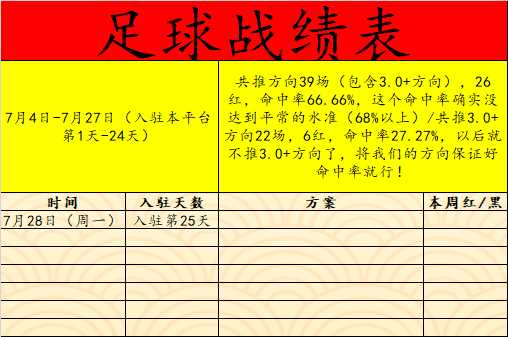 足球战绩表
7月4日-7月27日（入驻本平台
第1天-24天）
共推方向39场（包含3.0+方向），26
红，命中率66.66%，这个命中率确实没
达到平常的水准（68%以上）/共推3.0+
方向22场，6红，命中率27.27%，以后就
不推3.0+方向了，将我们的方向保证好
命中率就行！
时间 入驻天数 方案 本周红/黑
7月28日（周一） 入驻第25天